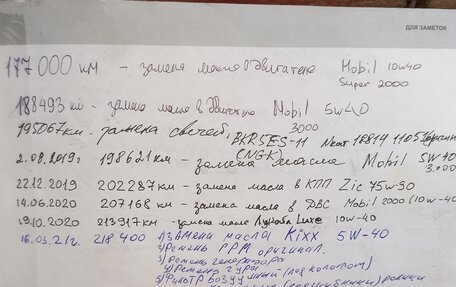 ДЛЯ ЗАМЕТОК
177 000 км - замена масла Двигателя Mobil 10w40
Super 2000
188493 км - замена масла в двигателе Mobil 5w40
3000
195067км - замена свечей, BKR5ES-11
(NGK)
2.08.2019г 198621км - замена масла Mobil 5W40
3.000
22.12.2019 202287км - замена масла в КПП Zic 75w90
14.06.2020 207168 км - замена масла в ДВС Mobil 2000 (10w-40)
19.10.2020 213917км - замена масла Лукойл Luxe 10w-40
16.03.21г. 218 400 1) Замена масла Kixx 5W-40
2) Ремень ГРМ оригинал.
3) Ремень генератора
4) Ремень гура
5) Фильтр возду
ролики